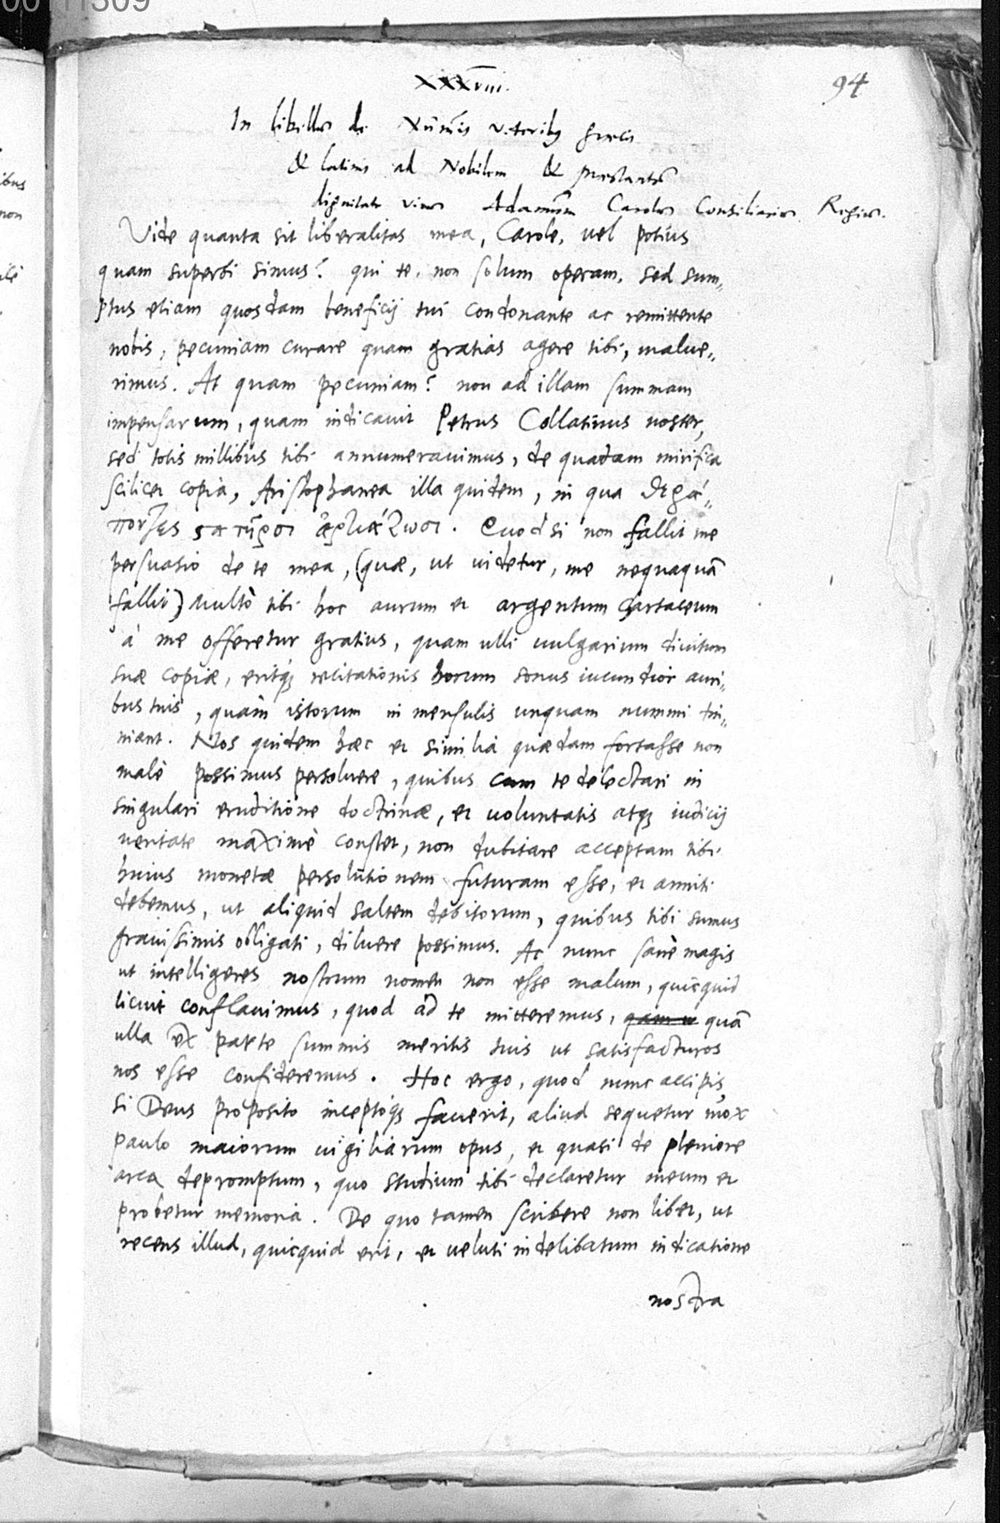 00111309
XXXVIII.
94
In libellos de Nūmis veteribus graecis
& latinis ad Nobilem & praestantē
dignitate virum Adamum Carolum Consiliarium Regium.
Vide quanta sit liberalitas mea, Carole, uel potius
quam superbi simus? qui te, non solum operam, sed sum,,
ptus etiam quosdam beneficij tui condonante ac remittente
nobis, pecuniam curare quam gratias agere tibi, malue,,
rimus. At quam pecuniam? non ad illam summam
impensarum, quam indicauit Petrus Collatinus noster,
sed totis millibus tibi annumerauimus, de quadam mirifica
scilicet copia, Aristophanea illa quidem, in qua
Quod si non fallit me
persuasio de te mea, (quæ, ut uidetur, me nequaquā
fallit) Multò tibi hoc aurum et argentum Cartaceum
à me offeretur gratius, quam ulli uulgarium diuitum
suæ copiæ, eritq́; recitationis horum sonus iucundior auri,,
bus tuis, quàm istorum in mensulis unquam nummi tin,,
niant. Nos quidem hæc et similia quædam fortasse non
malè possimus persoluere, quibus cum te delectari in
singulari eruditione doctrinæ, et uoluntatis atq; iudicij
ueritate maximè constet, non dubitare acceptam tibi
huius monetæ persolutionem futuram esse, et anniti
debemus, ut aliquid saltem debitorum, quibus tibi sumus
grauissimis obligati, diluere possimus. Ac nunc sanè magis
ut intelligeres nostrum nomen non esse malum, quicquid
licuit conflauimus, quod ad te mitteremus, quā
ulla ex parte summis meritis tuis ut satisfacturos
nos esse confideremus. Hoc ergo, quod nunc accipis,
si Deus proposito inceptoq́; fauerit, aliud sequetur mox
paulo maiorum uigiliarum opus, et quasi de pleniore
arca depromptum, quo studium tibi declaretur meum et
probetur memoria. De quo tamen scribere non libet, ut
recens illud, quicquid erit, et ueluti indelibatum indicatione
nostra